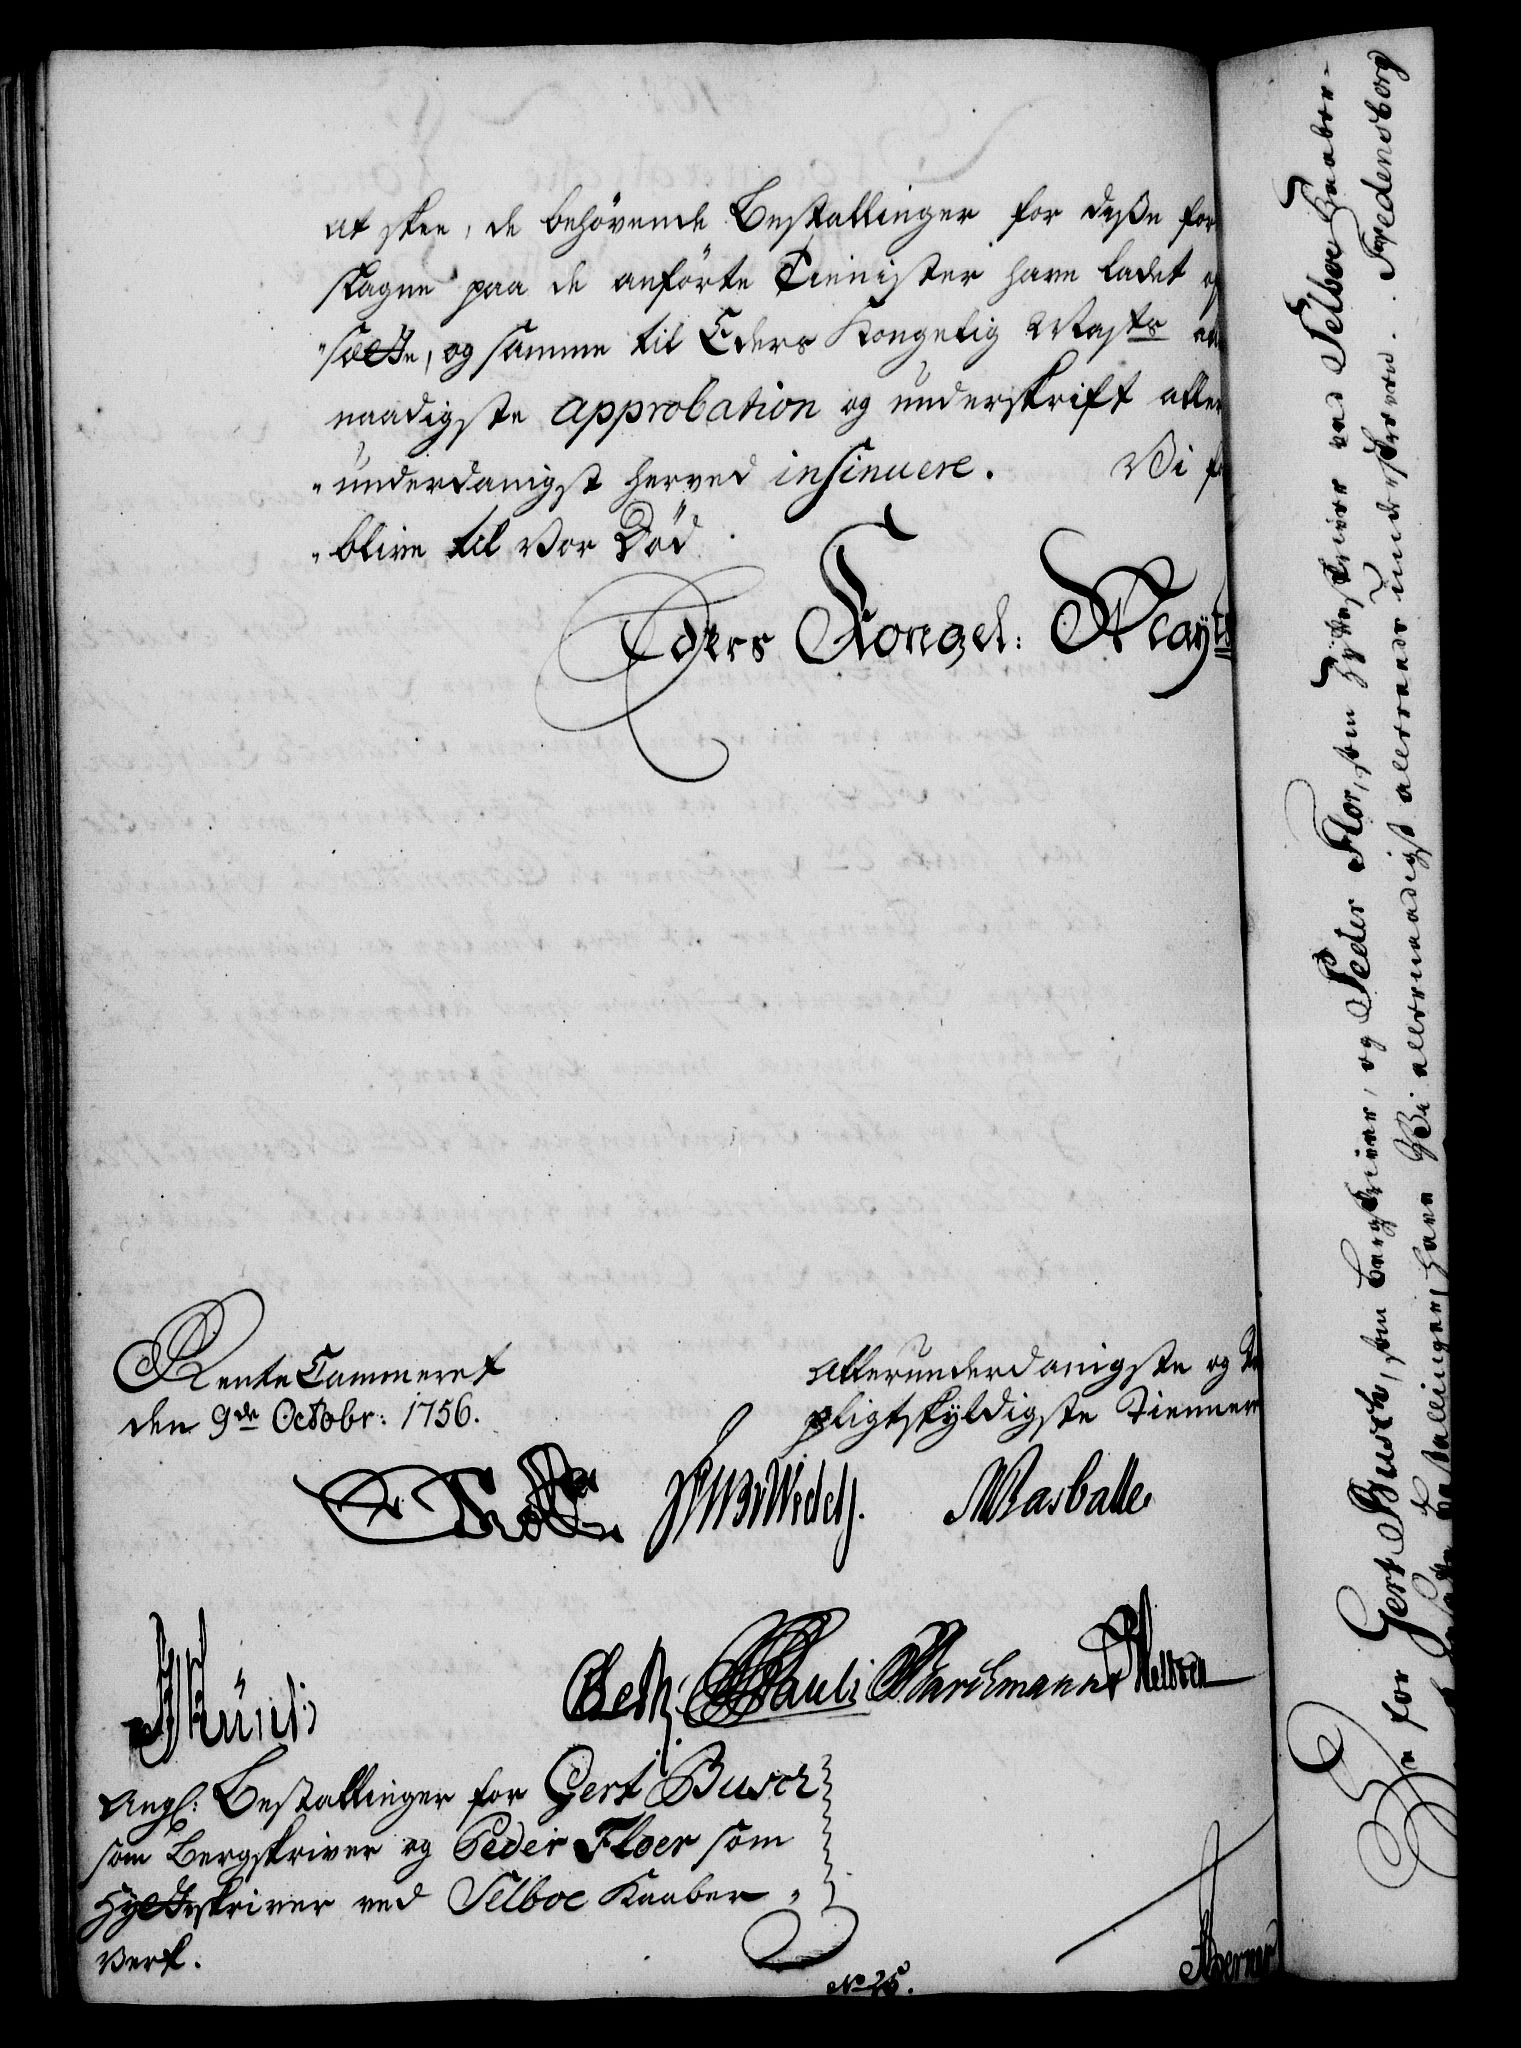 at skee, de behövende Bestallinger for deße for
slagne paa de anförte Tienister have ladet op
"sætte, og samme til Eders Kongelig Mayts
naadigste approbation og underskrift aller
"underdanigst herved insinuere. Vi
"blive til vor Död.
Eders Kongel: Mayts
RenteCammeret
den 9de Octobr: 1756.
allerunderdanigste og
pligtskyldigste Tiennere
Wedel
Rasballe
Pauli
Angl: Bestallinger for Gert Busch
som Bergskriver og Peder Floer som
Hytteskriver ved Selboe Kaaber,,
Verk.
No 25.
for Gert Busch, som Bergskriver, og Peder Flor, som Hytteskriver ved Selboe Kaaber-
Bestallinger, have Vi allernaadigst allereede underskreven. Fredensborg